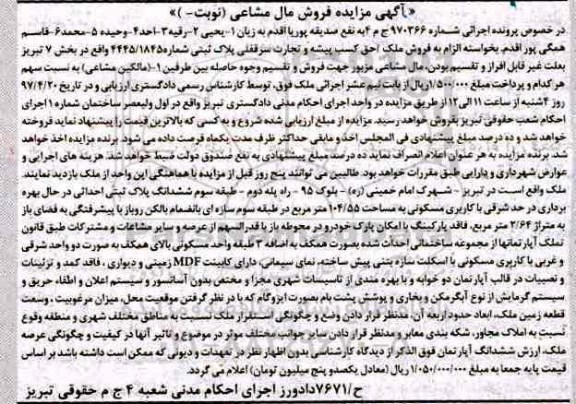 «آگهی مزایده فروش مال مشاعی (نوبت- )»
در خصوص پرونده اجرائی شماره ۹۷۰۳۶۶ ج م ۴ به نفع صدیقه پوریا اقدم به زیان ۱-یحیی ۲-رقیه ۳-احد ۴-وحیده ۵-محمد ۶-قاسم
همگی پور اقدم، بخواسته الزام به فروش ملک (حق کسب پیشه و تجارت سرقفلی پلاک ثبتی شماره ۴۴۴۵/۱۸۴۵ واقع در بخش ۷ تبریز
بعلت غیر قابل افراز و تقسیم بودن، مال مشاعی مزبور جهت فروش و تقسیم وجوه حاصله بین طرفین ۱-(مالکین مشاعی) به نسبت سهم
هر کدام و پرداخت مبلغ ۱/۵۰۰/۰۰۰ ریال از بابت نیم عشر اجرائی ملک فوق، توسط کارشناس رسمی دادگستری ارزیابی و در تاریخ ۹۷/۴/۲۰
روز ۴شنبه از ساعت ۱۱ الی ۱۲ از طریق مزایده در واحد اجرای احکام مدنی دادگستری تبریز واقع در اول ولیعصر ساختمان شماره ۱ اجرای
احکام شعب حقوقی تبریز بفروش خواهد رسید. مزایده از مبلغ ارزیابی شده شروع و به کسی که بالاترین قیمت را پیشنهاد نماید فروخته
خواهد شد و ده درصد مبلغ پیشنهادی فی المجلس اخذ و مابقی حداکثر ظرف مدت یکماه فرصت داده می شود. برنده مزایده اخذ خواهد
شد. برنده مزایده به هر عنوان اعلام انصراف نماید ده درصد مبلغ پیشنهادی به نفع صندوق دولت ضبط خواهد شد. هزینه های اجرایی و
عوارض شهرداری و دارایی طبق مقررات خواهد بود. طالبین می توانند پنج روز قبل از مزایده با هماهنگی این واحد از ملک بازدید نمایند.
ملک واقع است در تبریز - شهرک امام خمینی (ره) - بلوک ۹۵ - راه پله دوم - طبقه سوم ششدانگ پلاک ثبتی احداثی در حال بهره
برداری در حد شرقی با کاربری مسکونی به مساحت ۱۰۴/۵۵ متر مربع در طبقه سوم سازه ای بانضمام بالکن روباز با پیشرفتگی به فضای باز
به متراژ ۲/۶۴ متر مربع، فاقد پارکینگ با امکان پارک خودرو در محوطه باز با قدرالسهم از عرصه و سایر مشاعات و مشترکات طبق قانون
تملک آپارتمانها از مجموعه ساختمانی احداث شده بصورت همکف به اضافه ۳ طبقه واحد مسکونی بالای همکف به صورت دو واحد شرقی
و غربی با کاربری مسکونی با اسکلت سازه بتنی پیش ساخته، نمای سیمانی، دارای کابینت MDF زمینی و دیواری، فاقد کمد و تزئینات
و نصبیات در قالب آپارتمان دو خوابه و با بهره مندی از تاسیسات شهری مجزا و مختص بدون آسانسور و سیستم اعلان و اطفاء حریق و
سیستم گرمایش از نوع آبگرمکن و بخاری و پوشش پشت بام بصورت ایزوگام که با در نظر گرفتن موقعیت محل، میزان مرغوبیت، وسعت
قطعه زمین ملک، ابعاد حدود اربعه آن، مدنظر قرار دادن وضع و چگونگی استقرار ملک نسبت به مناطق مختلف شهری و منطقه وقوع
نسبت به املاک مجاور، شبکه بندی معابر و مدنظر قرار دادن سایر جوانب مختلف موثر در موضوع و تاثیر آنها در کیفیت و چگونگی عرصه
ملک، ارزش ششدانگ آپارتمان فوق الذکر از دیدگاه کارشناسی بدون اظهار نظر در تعهدات و دیونی که ممکن است داشته باشد بر اساس
قیمت پایه جمعا به مبلغ ۱/۰۵۰/۰۰۰/۰۰۰ ریال (معادل یکصد و پنج میلیون تومان) اعلام می گردد.
ح/۷۶۷۱ دادورز اجرای احکام مدنی شعبه ۴ ج م حقوقی تبریز